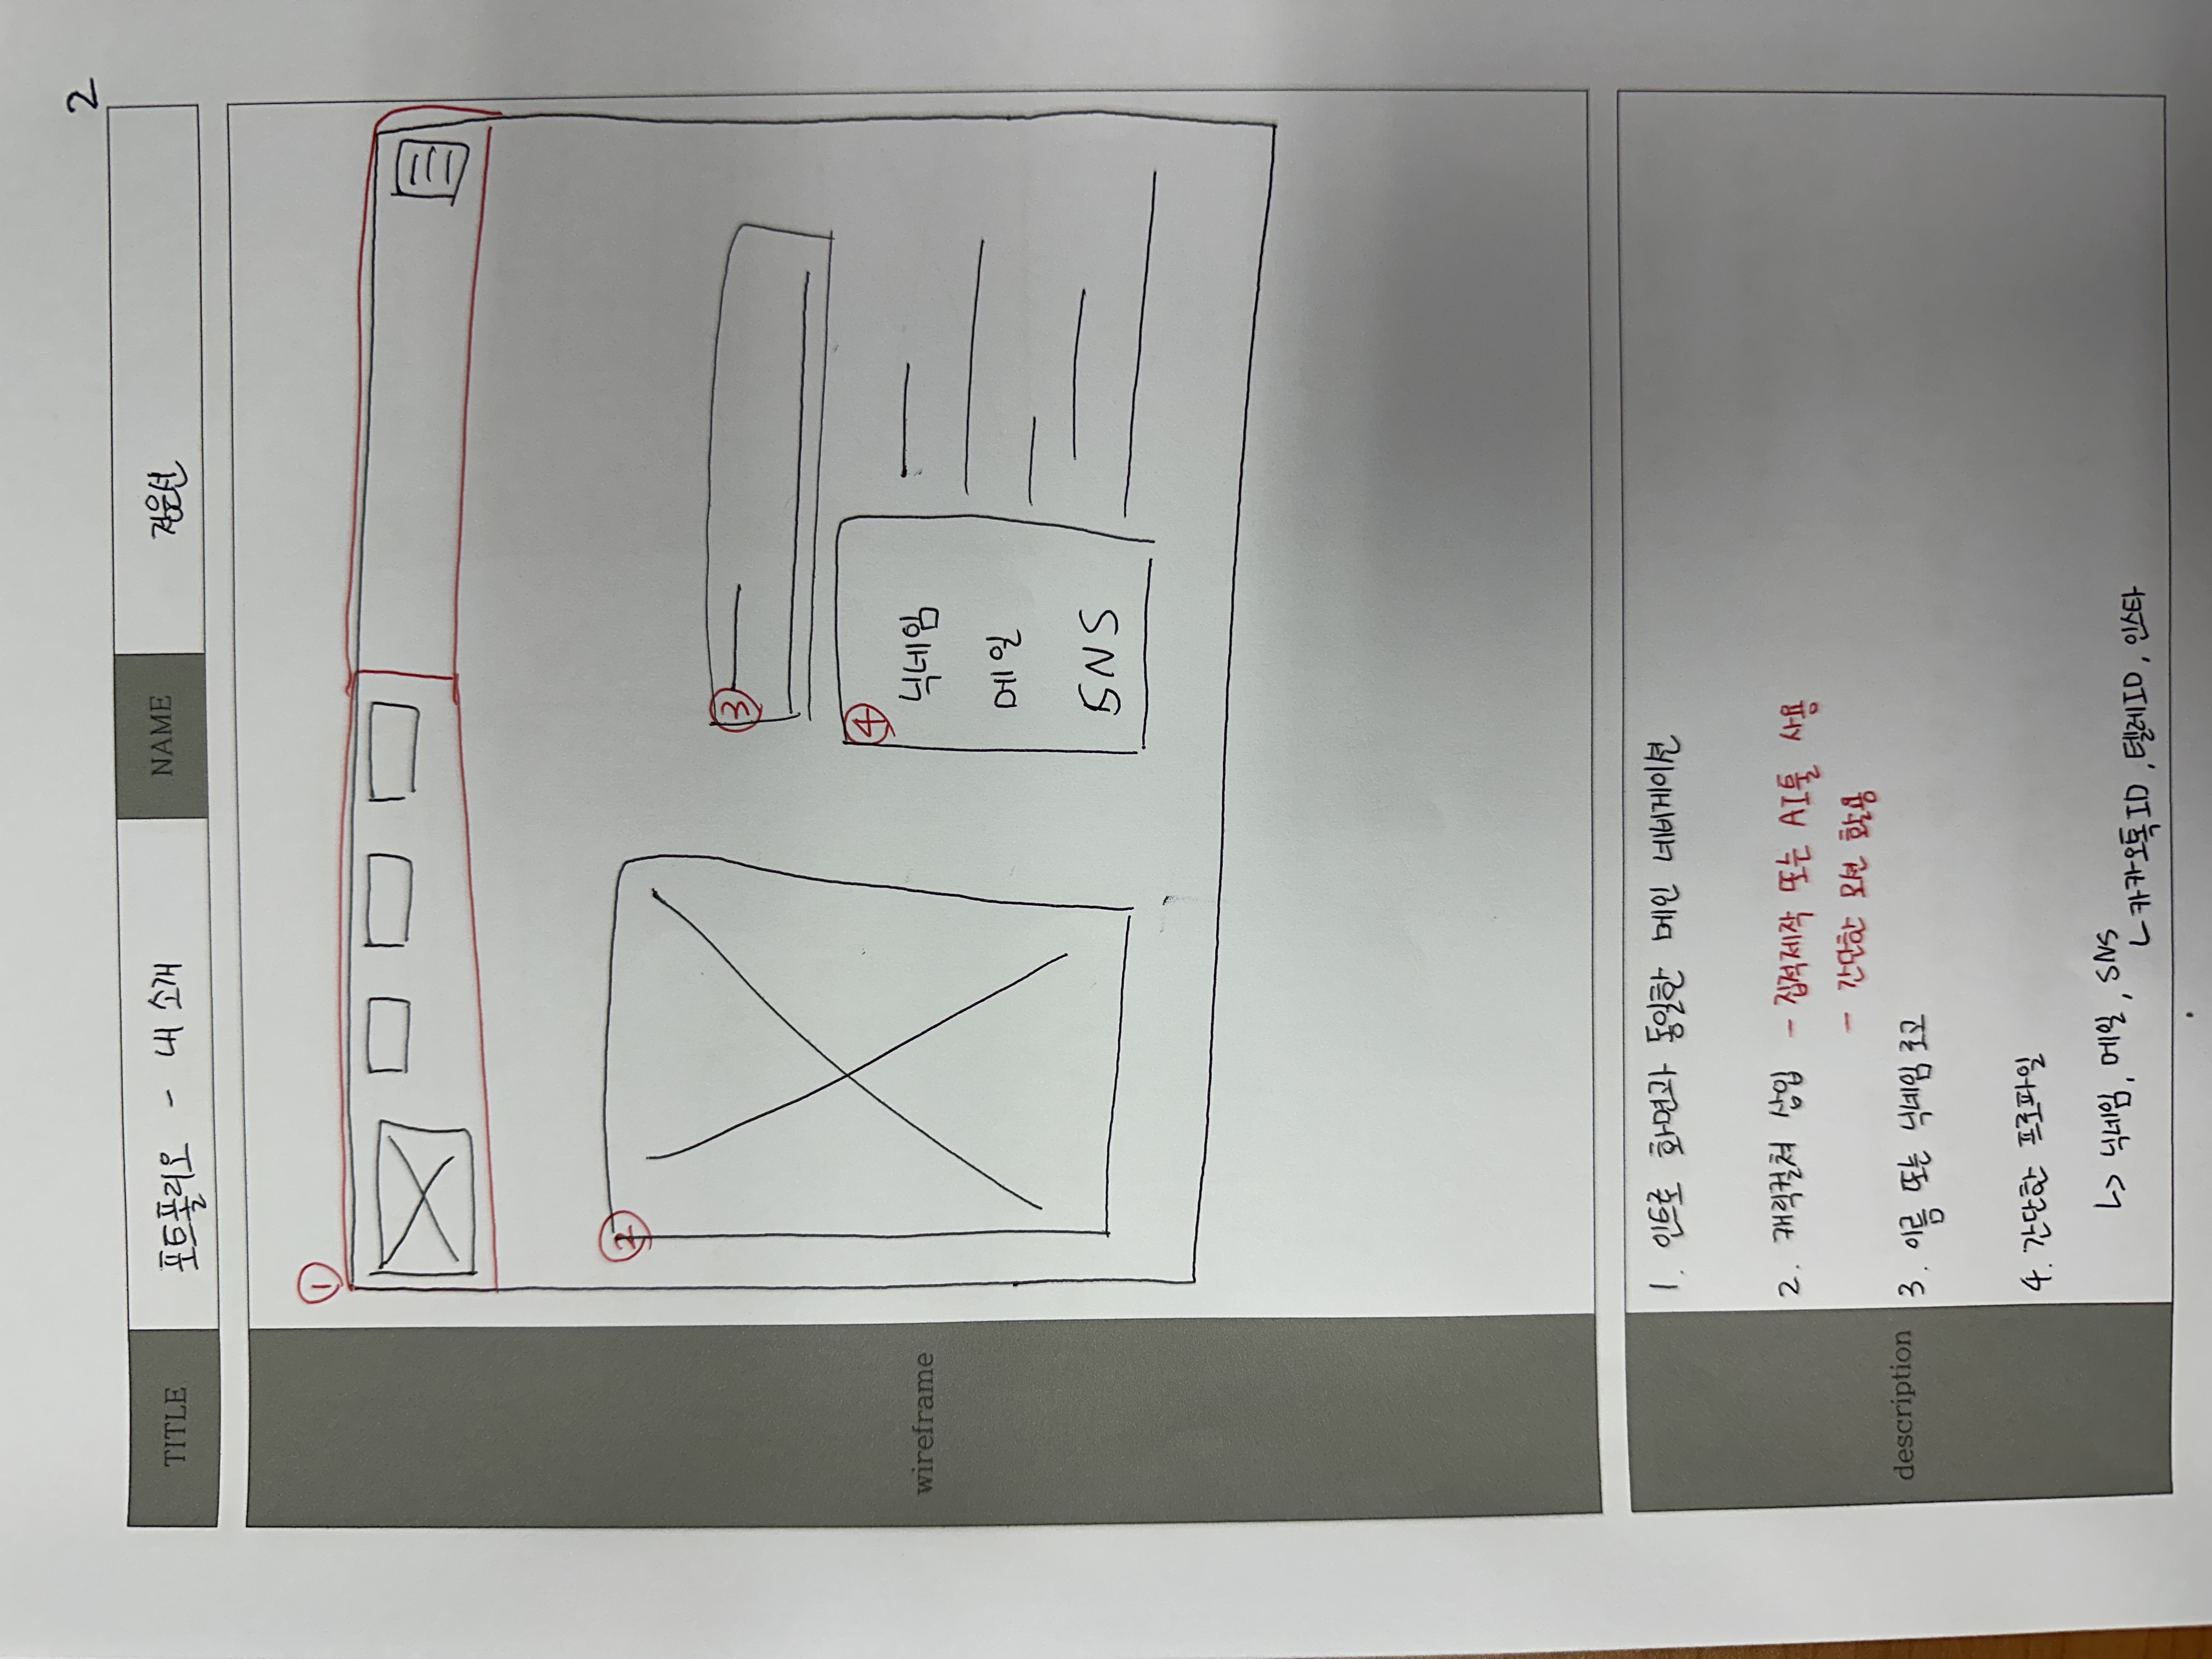 2
TITLE 포트폴리오 - 내 소개 NAME 전은선
wireframe
①
②
③
④
닉네임
메일
SNS
description
1. 인트로 화면과 동일한 메인 네비게이션
2. 캐릭컬쳐 삽입 - 집적제작 또는 AI툴 사용
- 간단한 모션 활용
3. 이름 또는 닉네임 로고
4. 간단한 프로파일
↳ 닉네임, 메일, SNS
ㄴ 카카오톡ID, 텔레ID, 인스타